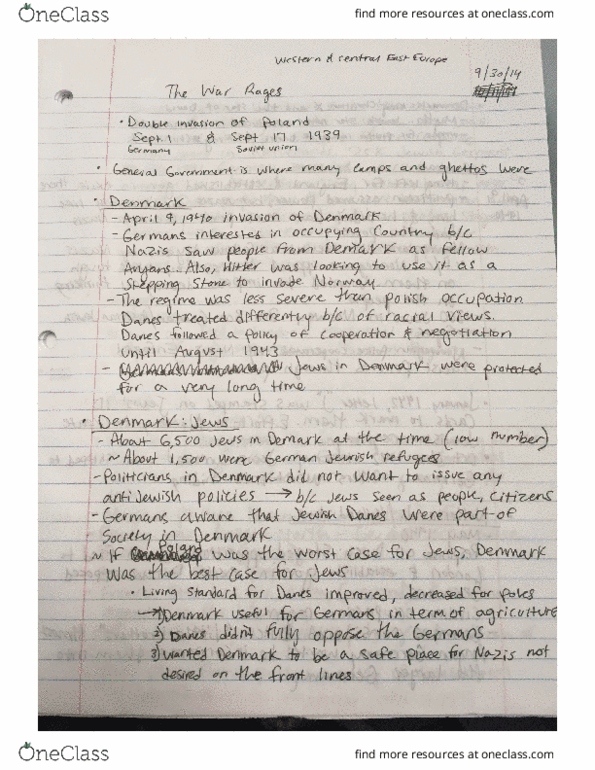 OneClass
find more resources at oneclass.com
Western & central East Europe
9/30/14
The War Rages
• Double invasion of Poland
Sept. 1 & Sept 17 1939
Germany Soviet union
• General Government is where many camps and ghettos were
• Denmark
- April 9, 1940 invasion of Denmark
- Germans interested in occupying Country b/c
Nazis saw people from Demark as fellow
Aryans. Also, Hitler was looking to use it as a
stepping stone to invade Norway
- The regime was less severe than polish occupation
Danes treated differently b/c of racial views.
Danes followed a policy of cooperation & negotiation
until August 1943
- Jews in Denmark were protected
for a very long time
• Denmark: Jews
- About 6,500 Jews in Demark at the time (low number)
~ About 1,500 were German Jewish refugees
- Politicians in Denmark did not want to issue any
anti Jewish policies → b/c Jews seen as people, citizens
- Germans aware that Jewish Danes were part of
Society in Denmark
~ If Poland was the worst case for Jews, Denmark
was the best case for Jews
• Living standard for Danes improved, decreased for poles
→ 1) Denmark useful for Germans in term of agriculture
2) Danes didn't fully oppose the Germans
3) Wanted Denmark to be a safe place for Nazis not
desired on the front lines
OneClass
find more resources at oneclass.com